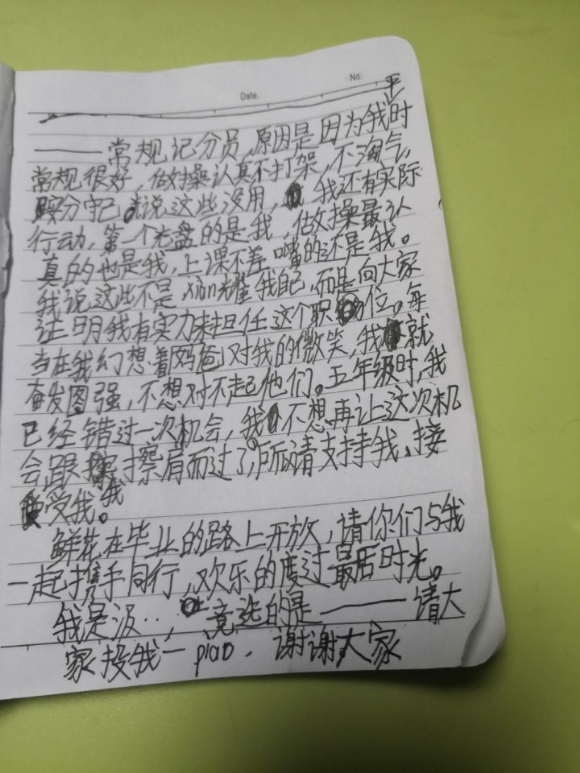 No.
Date.
平
——常规记分员,原因是因为我时
常规很好,做操认真不打架,不淘气,
安分守己。光说这些没用,我还有实际
行动,第一个光盘的是我,做操最认
真的也是我,上课不差嘴的还是我。
我说这些不是xiàn耀我自己,而是向大家
证明我有实力来担任这个职位。每
当在我幻想着妈爸对我的微笑,我就
奋发图强,不想对不起他们。五年级时,我
已经错过一次机会,我不想再让这次机
会跟我擦肩而过了,所以请支持我、接
受我。
鲜花在毕业的路上开放,请你们与我
一起携手同行,欢乐的度过最后时光。
我是汲..,竞选的是——请大
家投我一piao.谢谢大家